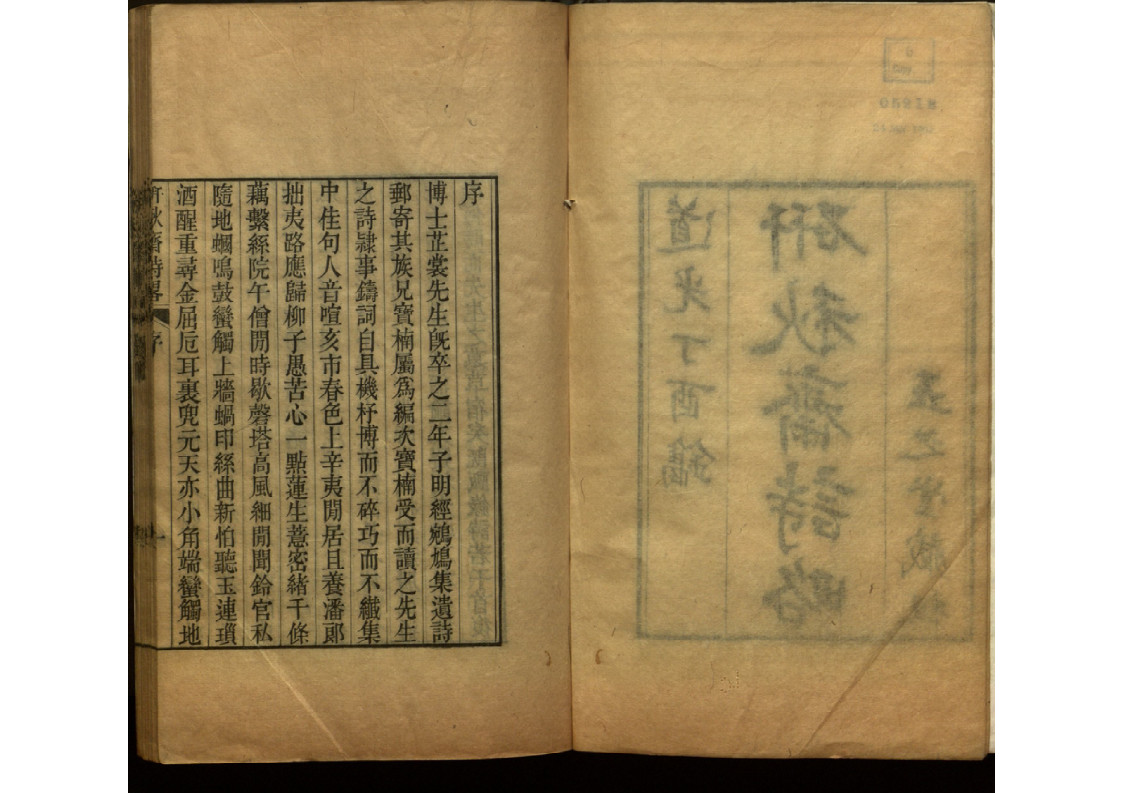 研秋齋詩略
道光丁酉鐫
序
博士芷裳先生旣卒之二年子明經鵷鳩集遺詩
郵寄其族兄寶楠屬爲編次寶楠受而讀之先生
之詩隷事鑄詞自具機杼博而不碎巧而不纖集
中佳句人音喧亥市春色上辛夷閒居且養潘郞
拙夷路應歸柳子愚苦心一點蓮生薏密緒千條
藕繫絲院午僧閒時歇磬塔高風細閒聞鈴官私
隨地蟈鳴鼓蠻觸上牆蝸印絲曲新怕聽玉連瑣
酒醒重尋金屈卮耳裏兜元天亦小角端蠻觸地
研秋齋詩略 序 一